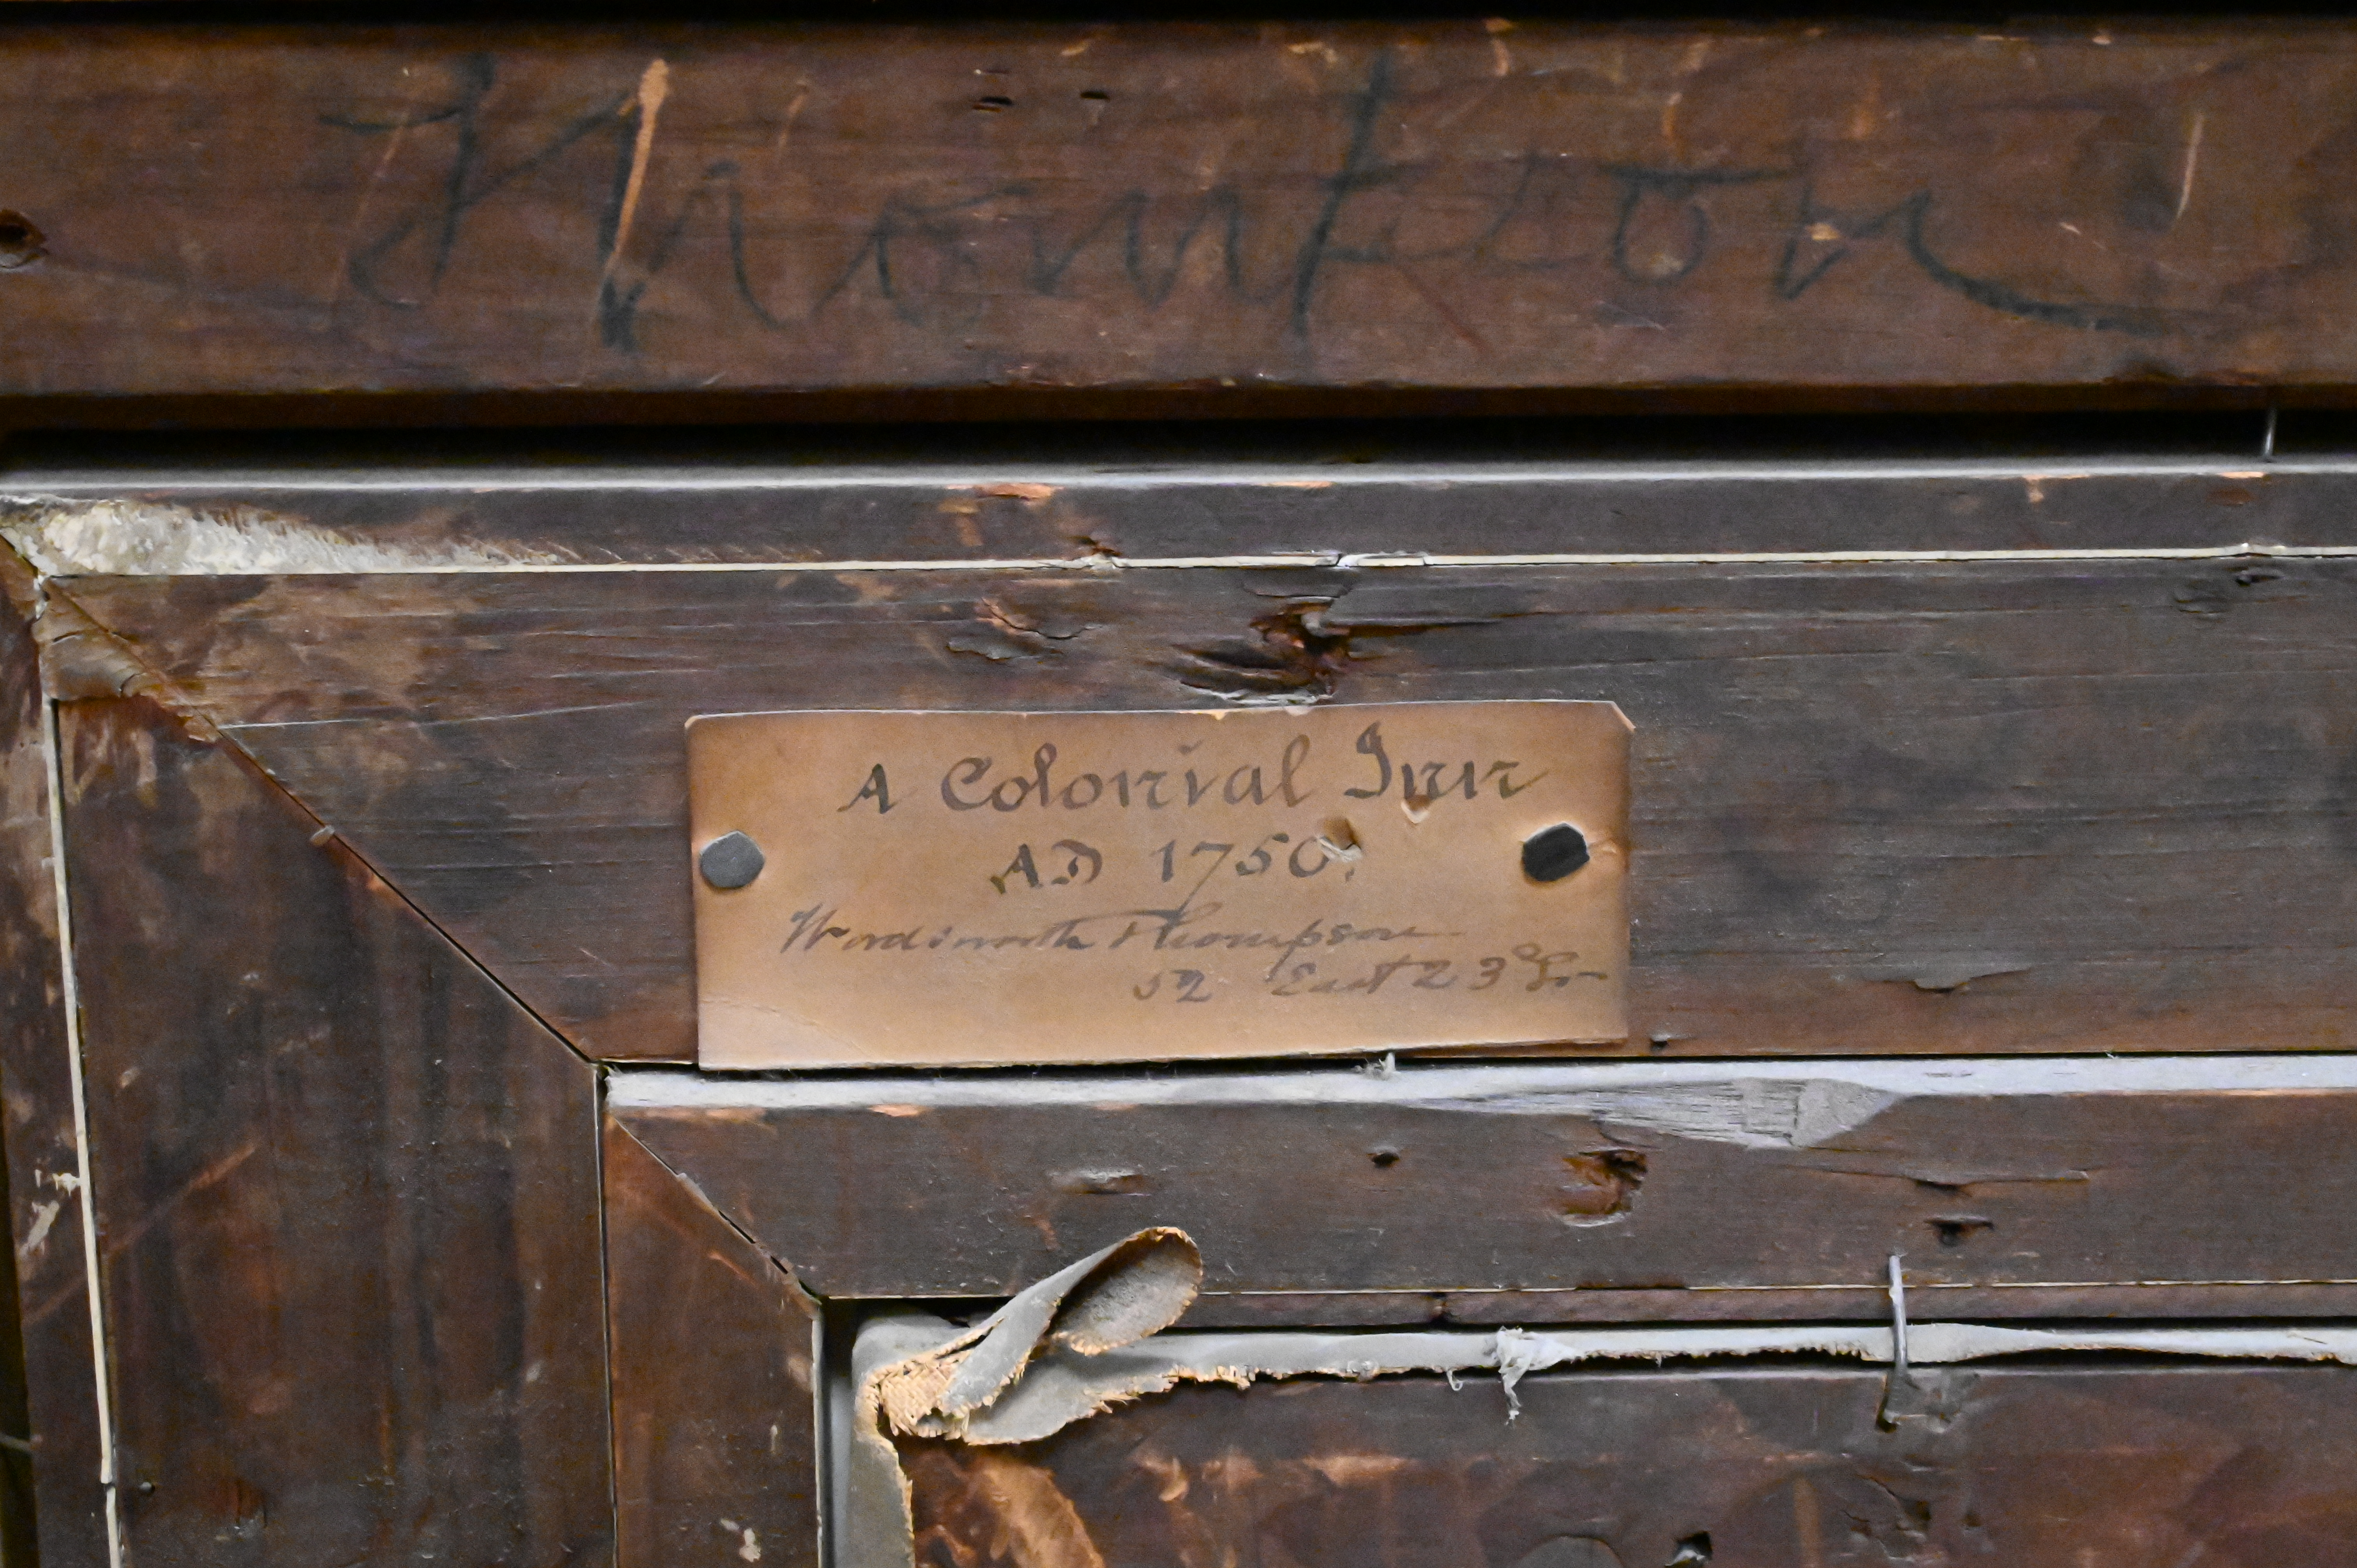 Thompson
A Colonial Inn
AD 1750.
Wordsworth Thompson
52 East 23d St